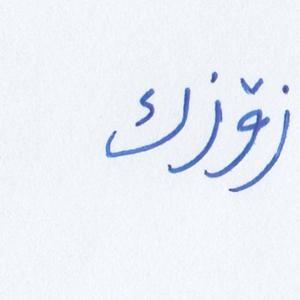 زۆزك